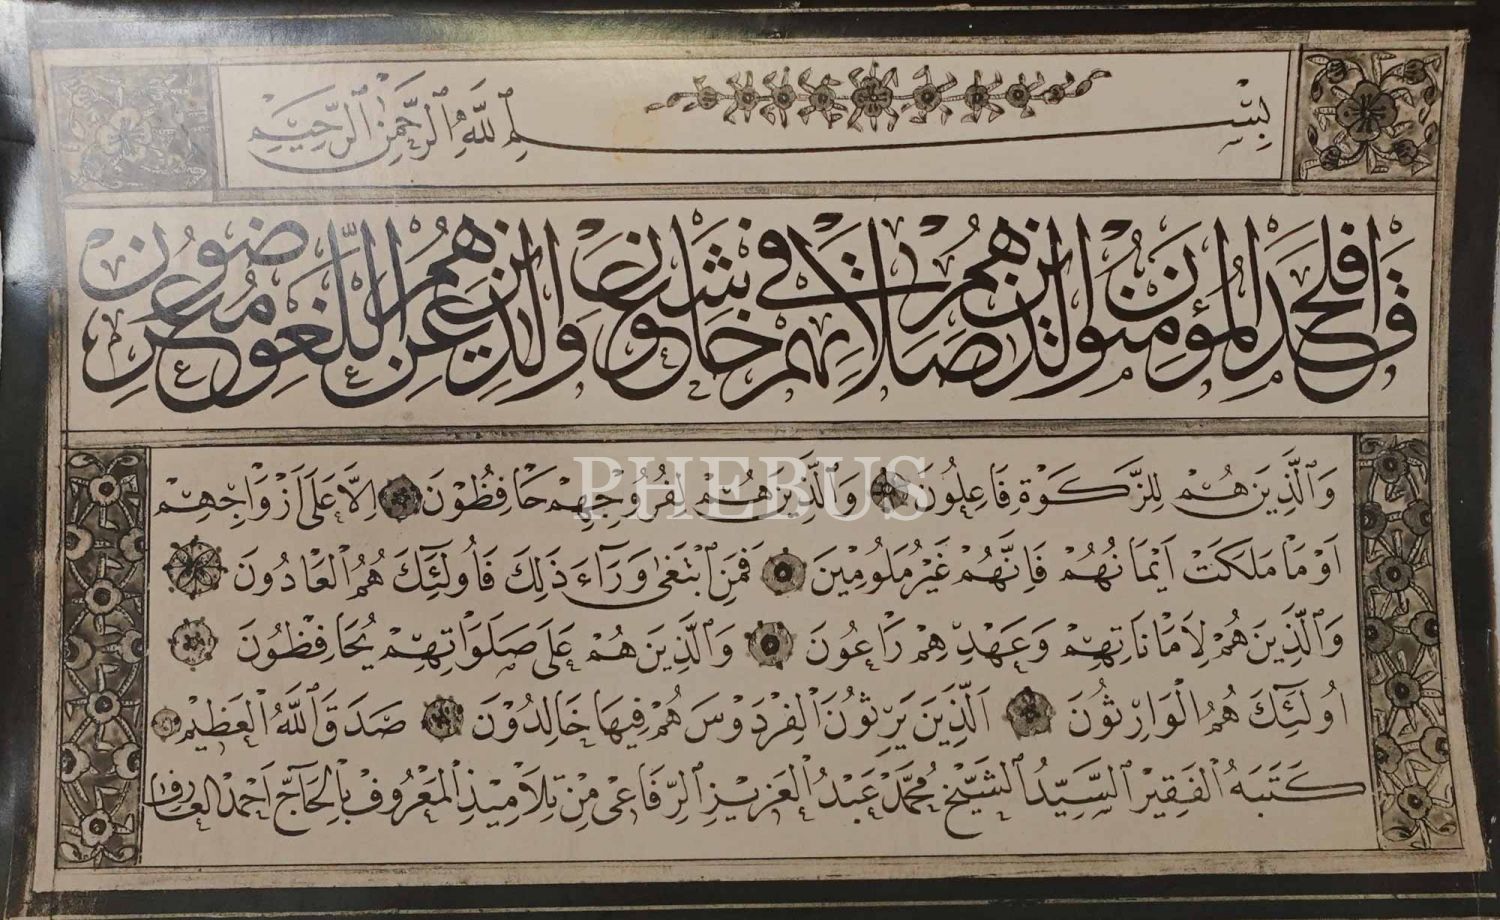 بِسْمِ اللَّهِ الرَّحْمٰنِ الرَّحِيمِ
قَدْ اَفْلَحَ الْمُؤْمِنُونَ الَّذِينَ هُمْ فِي صَلَاتِهِمْ خَاشِعُونَ وَالَّذِينَ هُمْ عَنِ اللَّغْوِ مُعْرِضُونَ
PHEBUS
وَالَّذِينَ هُمْ لِلزَّكَوٰةِ فَاعِلُونَ وَالَّذِينَ هُمْ لِفُرُوجِهِمْ حَافِظُونَ اِلَّا عَلَى اَزْوَاجِهِمْ
اَوْ مَا مَلَكَتْ اَيْمَانُهُمْ فَاِنَّهُمْ غَيْرُ مَلُومِينَ فَمَنِ ابْتَغٰى وَرَآءَ ذَلِكَ فَاُولَئِكَ هُمُ الْعَادُونَ
وَالَّذِينَ هُمْ لِاَمَانَاتِهِمْ وَعَهْدِهِمْ رَاعُونَ وَالَّذِينَ هُمْ عَلَى صَلَوَاتِهِمْ يُحَافِظُونَ
اُولَئِكَ هُمُ الْوَارِثُونَ اَلَّذِينَ يَرِثُونَ الْفِرْدَوْسَ هُمْ فِيهَا خَالِدُونَ صَدَقَ اللَّهُ الْعَظِيمُ
كَتَبَهُ الْفَقِيرُ السَّيِّدُ الشَّيْخُ مُحَمَّدْ عَبْدُ الْعَزِيزِ الرِّفَاعِي مِنْ تِلَامِيذِ الْمَعْرُوفْ بِالْحَاجّ اَحْمَدْ الْعَارِف